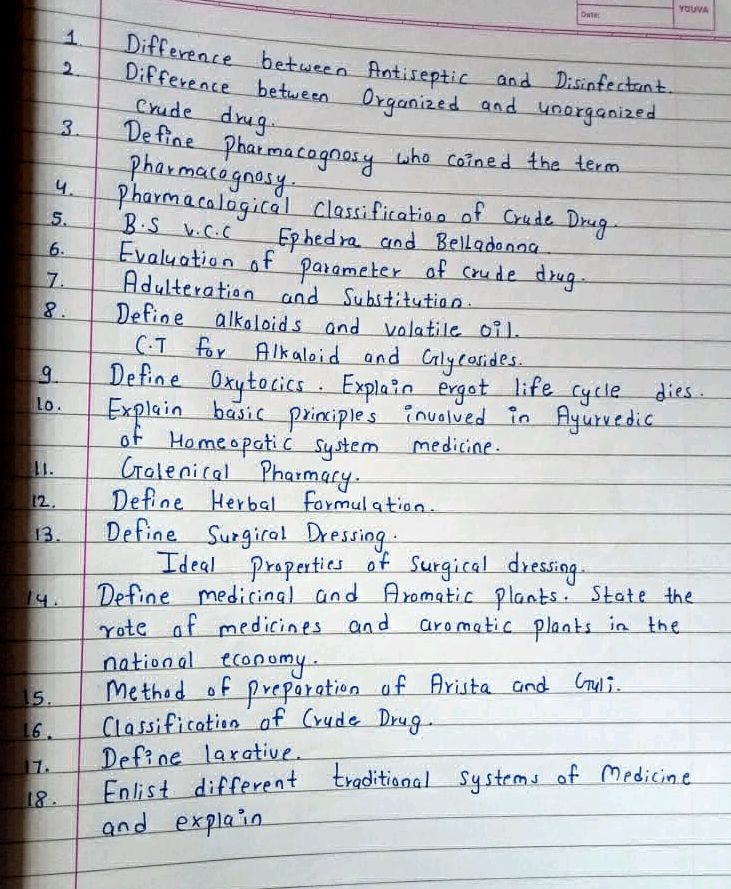 Date:
YOUVA
1. Difference between Antiseptic and Disinfectant.
2. Difference between Organized and unorganized
crude drug.
3. Define Pharmacognosy who coined the term
Pharmacognosy.
4. Pharmacological Classification of Crude Drug.
5. B.S v.c.c Ephedra and Belladonna
6. Evaluation of parameter of crude drug.
7. Adulteration and Substitution.
8. Define alkaloids and volatile oil.
C.T for Alkaloid and Glycosides.
9. Define Oxytocics. Explain ergot life cycle dies.
10. Explain basic principles involved in Ayurvedic
of Homeopatic system medicine.
11. Galenical Pharmacy.
12. Define Herbal formulation.
13. Define Surgical Dressing.
Ideal Properties of Surgical dressing.
14. Define medicinal and Aromatic plants. State the
rote of medicines and aromatic plants in the
national economy.
15. Method of preparation of Arista and Guli.
16. Classification of Crude Drug.
17. Define laxative.
18. Enlist different traditional systems of Medicine
and explain